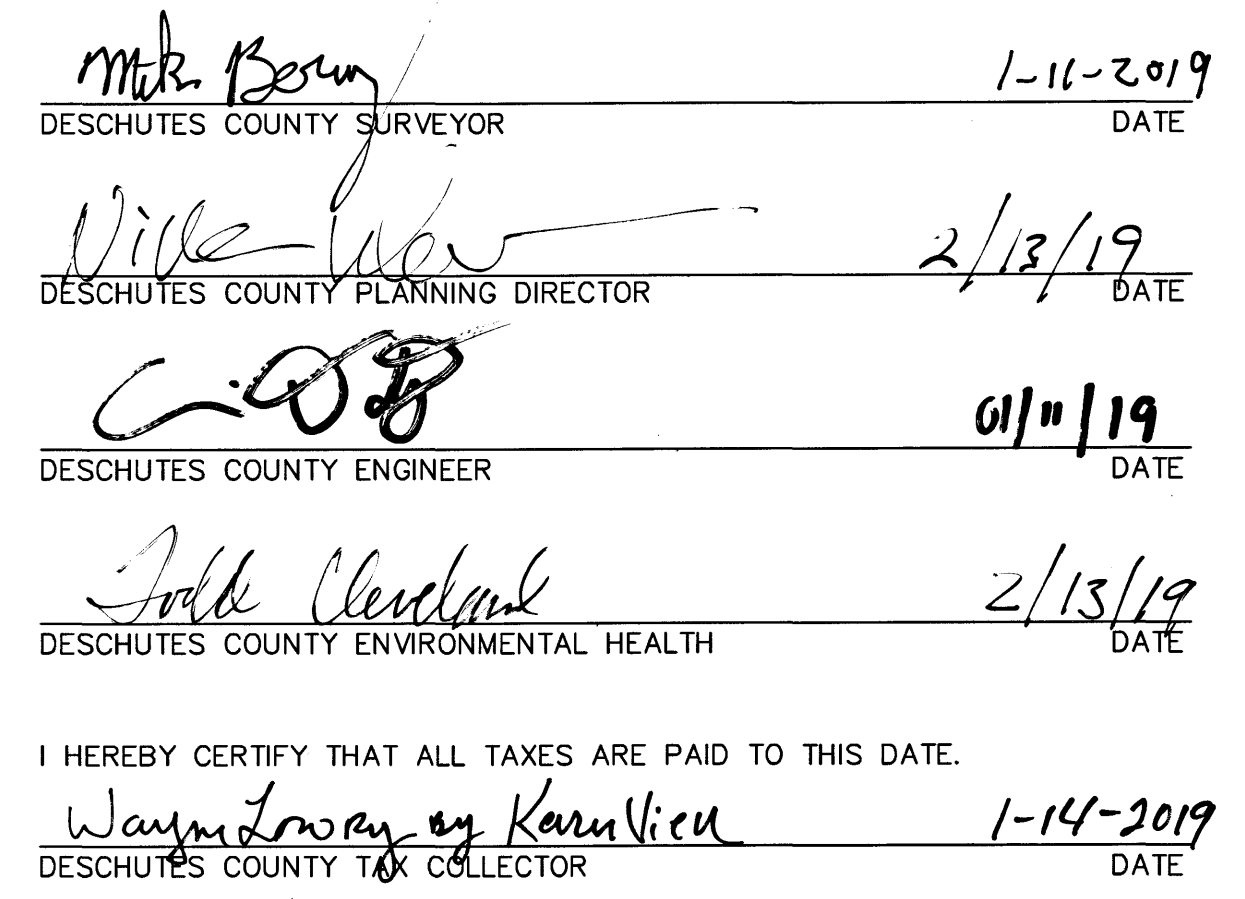 Mike Berry 1-11-2019
DESCHUTES COUNTY SURVEYOR DATE
Nick 2/13/19
DESCHUTES COUNTY PLANNING DIRECTOR DATE
01/11/19
DESCHUTES COUNTY ENGINEER DATE
Todd Cleveland 2/13/19
DESCHUTES COUNTY ENVIRONMENTAL HEALTH DATE
I HEREBY CERTIFY THAT ALL TAXES ARE PAID TO THIS DATE.
Wayne Lowry by Karen Vien 1-14-2019
DESCHUTES COUNTY TAX COLLECTOR DATE